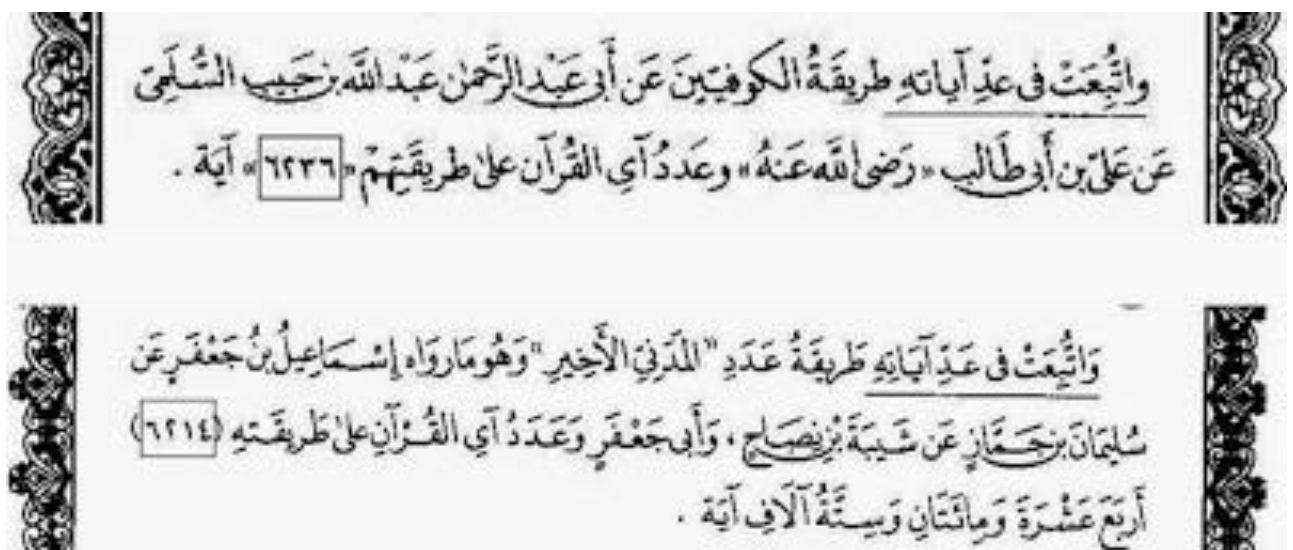 واتُّبِعَتْ فى عدِّ آياتهِ طريقَةُ الكوفيّينَ عَن أَبى عَبْدِ الرَّحمٰن عَبْد اللَّه بن حَبيب السُّلَمِىّ
عَن عَلىّ بن أَبى طَالب «رَضى اللَّه عَنهُ» وعَددُ آىِ القُرآن علىٰ طريقَتِهِمْ «٦٢٣٦» آيَة .
وَاتُّبِعَتْ فى عَدِّ آيَاتِهِ طَريقَةُ عَدَدِ "المَدَنِىِّ الأَخِيرِ" وَهُو مَا رَوَاه إِسْمَاعِيلُ بنُ جَعْفَرٍ عَن
سُلَيمَانَ بن جَمَّازٍ عَن شَيبَةَ بْنِ نِصَاحٍ ، وَأَبى جَعْفَرٍ وَعَدَدُ آىِ القُرْآنِ علىٰ طَريقَتهِ (٦٢١٤)
أَربَعَ عَشْرَةَ وَمِائَتَانِ وَسِتَّةُ آلَافِ آيَة .